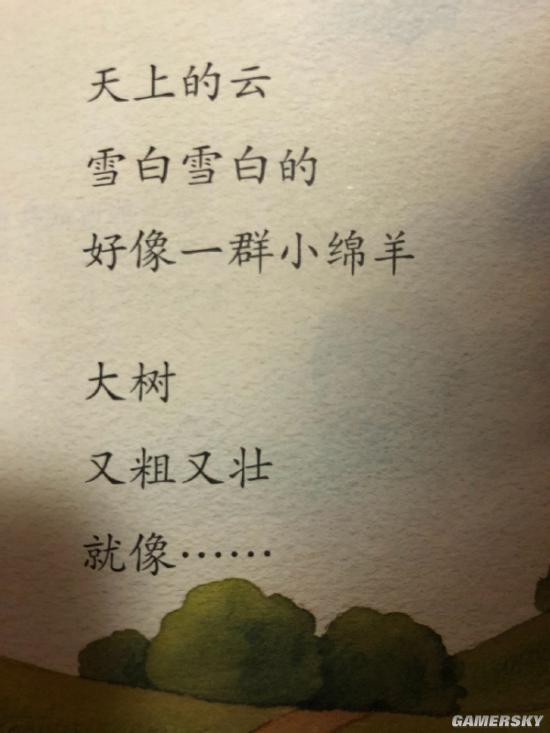 天上的云
雪白雪白的
好像一群小绵羊
大树
又粗又壮
就像……
GAMERSKY